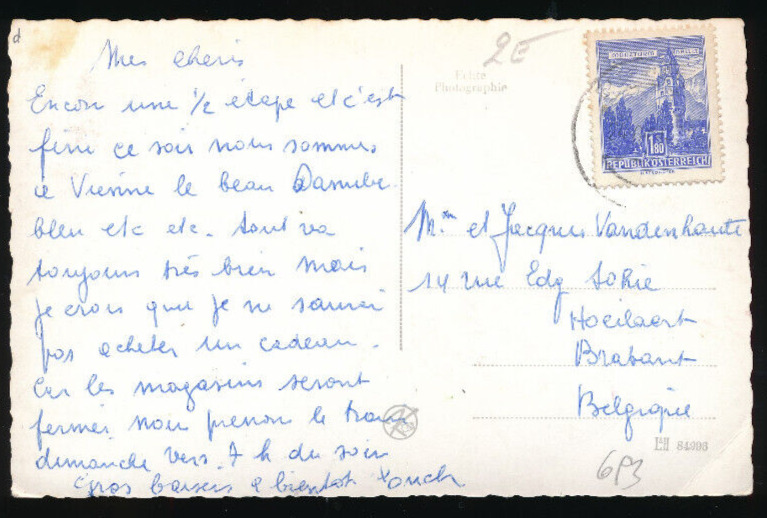 d
Mes cheris
Encore une 1/2 étape et c'est
fini ce soir nous sommes
a Vienne le beau Danube
bleu etc etc. tout va
toujours très bien mais
je crois que je ne saurai
pas acheter un cadeau.
Car les magasins seront
fermés nous prenons le train
dimanche vers 7 h du soir
Gros baisers a bientot
2E
Echte
Photographie
1.80
REPUBLIK ÖSTERREICH
Mme et Jacques Vandenhaute
14 rue Edg Sohie
Hoeilaart
Brabant
Belgique
84996
693